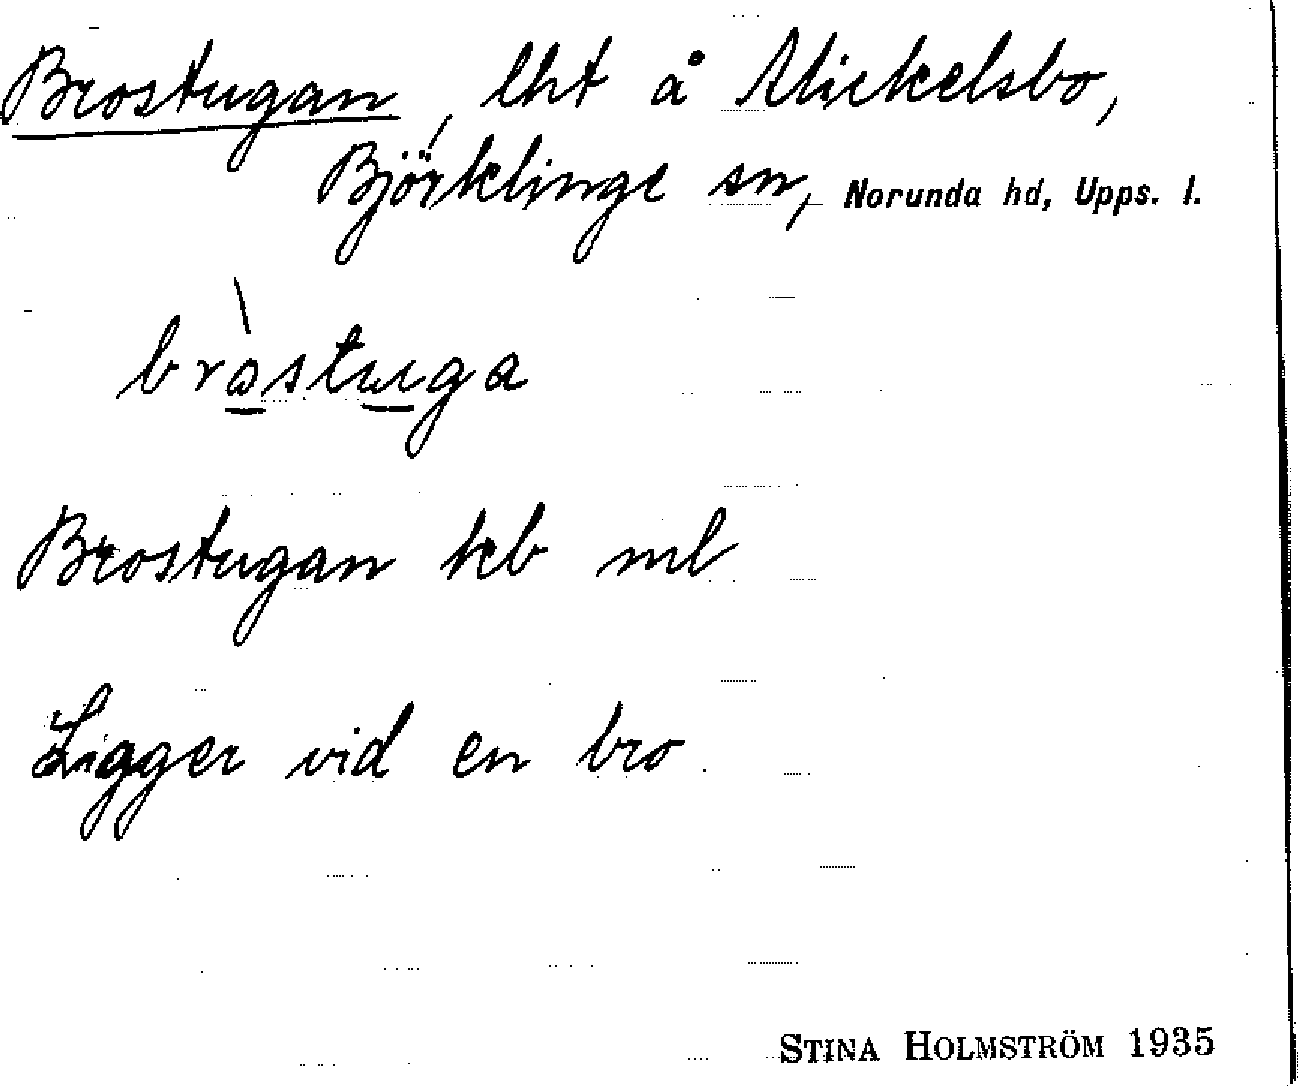 Brostugan, lht å Mickelsbo,
Björklinge sn, Norunda hd, Upps. l.
bròstuga
Brostugan kb ml
Ligger vid en bro.
STINA HOLMSTRÖM 1935